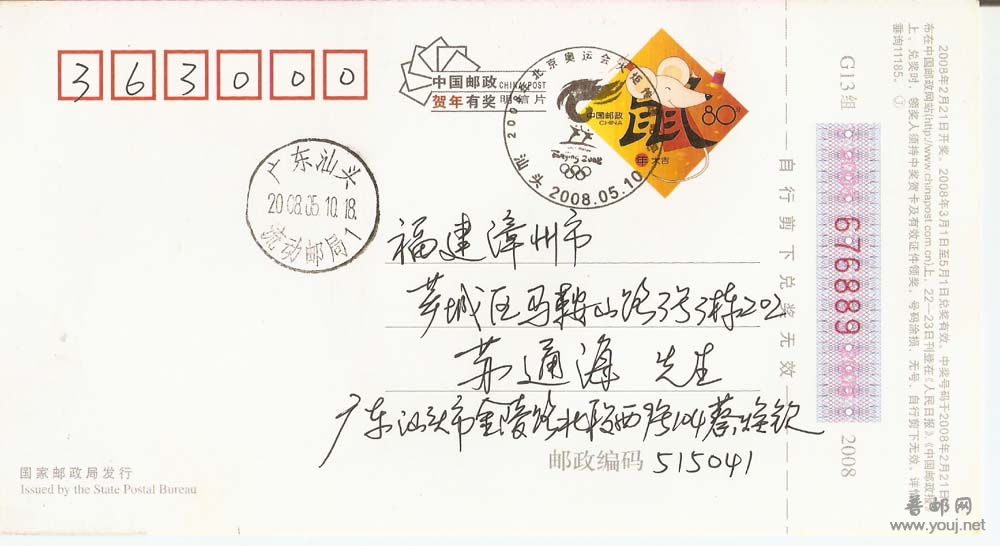 363000
中国邮政
CHINA POST
贺年有奖
明信片
2008北京奥运会火炬
Beijing 2008
汕头 2008.05.10
中国邮政
CHINA
鼠
80分
年 大吉
广东汕头
2008.05.10.18
流动邮局1
福建漳州市
芗城区马鞍山路3号3栋202
苏通海 先生
广东汕头市金陵路北段西
104蔡焕钦
邮政编码 515041
国家邮政局发行
Issued by the State Postal Bureau
自行剪下兑奖无效
G13组
676889
2008
2008年2月21日开奖。2008年3月1日至5月1日兑奖有效。中奖号码于2008年2月21日
布在中国邮政网站(http://www.chinapost.com.cn)上,22—23日刊登在《人民日报》、《中国邮政报》
上。兑奖时,领奖人须持中奖贺卡及有效证件领奖。号码涂损、无号、自行剪下无效。详情
垂询11185。
普邮网
www.youj.net